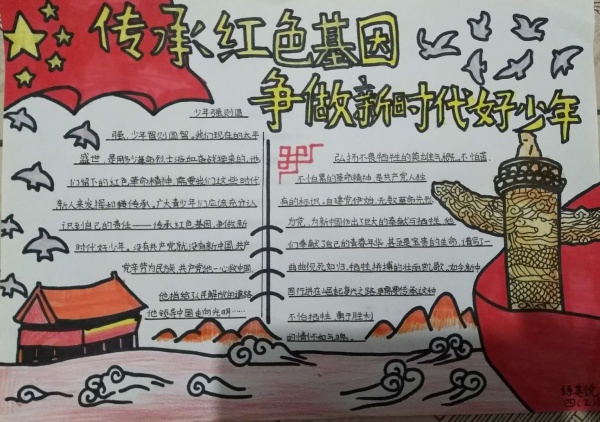 传承红色基因
争做新时代好少年
少年强则国
强、少年智则国智。我们现在的太平
盛世,是用多少革命烈士浴血奋战换来的,他
们留下的红色革命精神,需要我们这些时代
新人来发挥和传承,广大青少年们应该充分认
识到自己的责任——传承红色基因,争做新
时代好少年。没有共产党,就没有新中国,共产
党辛劳为民族,共产党他一心救中国,
他指给了人民解放的道路,
他领导中国走向光明……
弘扬不畏牺牲的英雄气概,不怕苦、
不怕累的革命精神,是共产党人独
有的标识,自建党伊始,无数革命先烈
为党、为新中国作出了巨大的奉献与牺牲,他
们奉献了自己的青春年华,甚至是宝贵的生命,谱写了一
曲曲视死如归,牺牲拼搏的壮丽凯歌,如今新中
国行进在崛起复兴之路,更需要传承这种
不怕牺牲,勇于胜利
的情怀和气魄。
四(2)